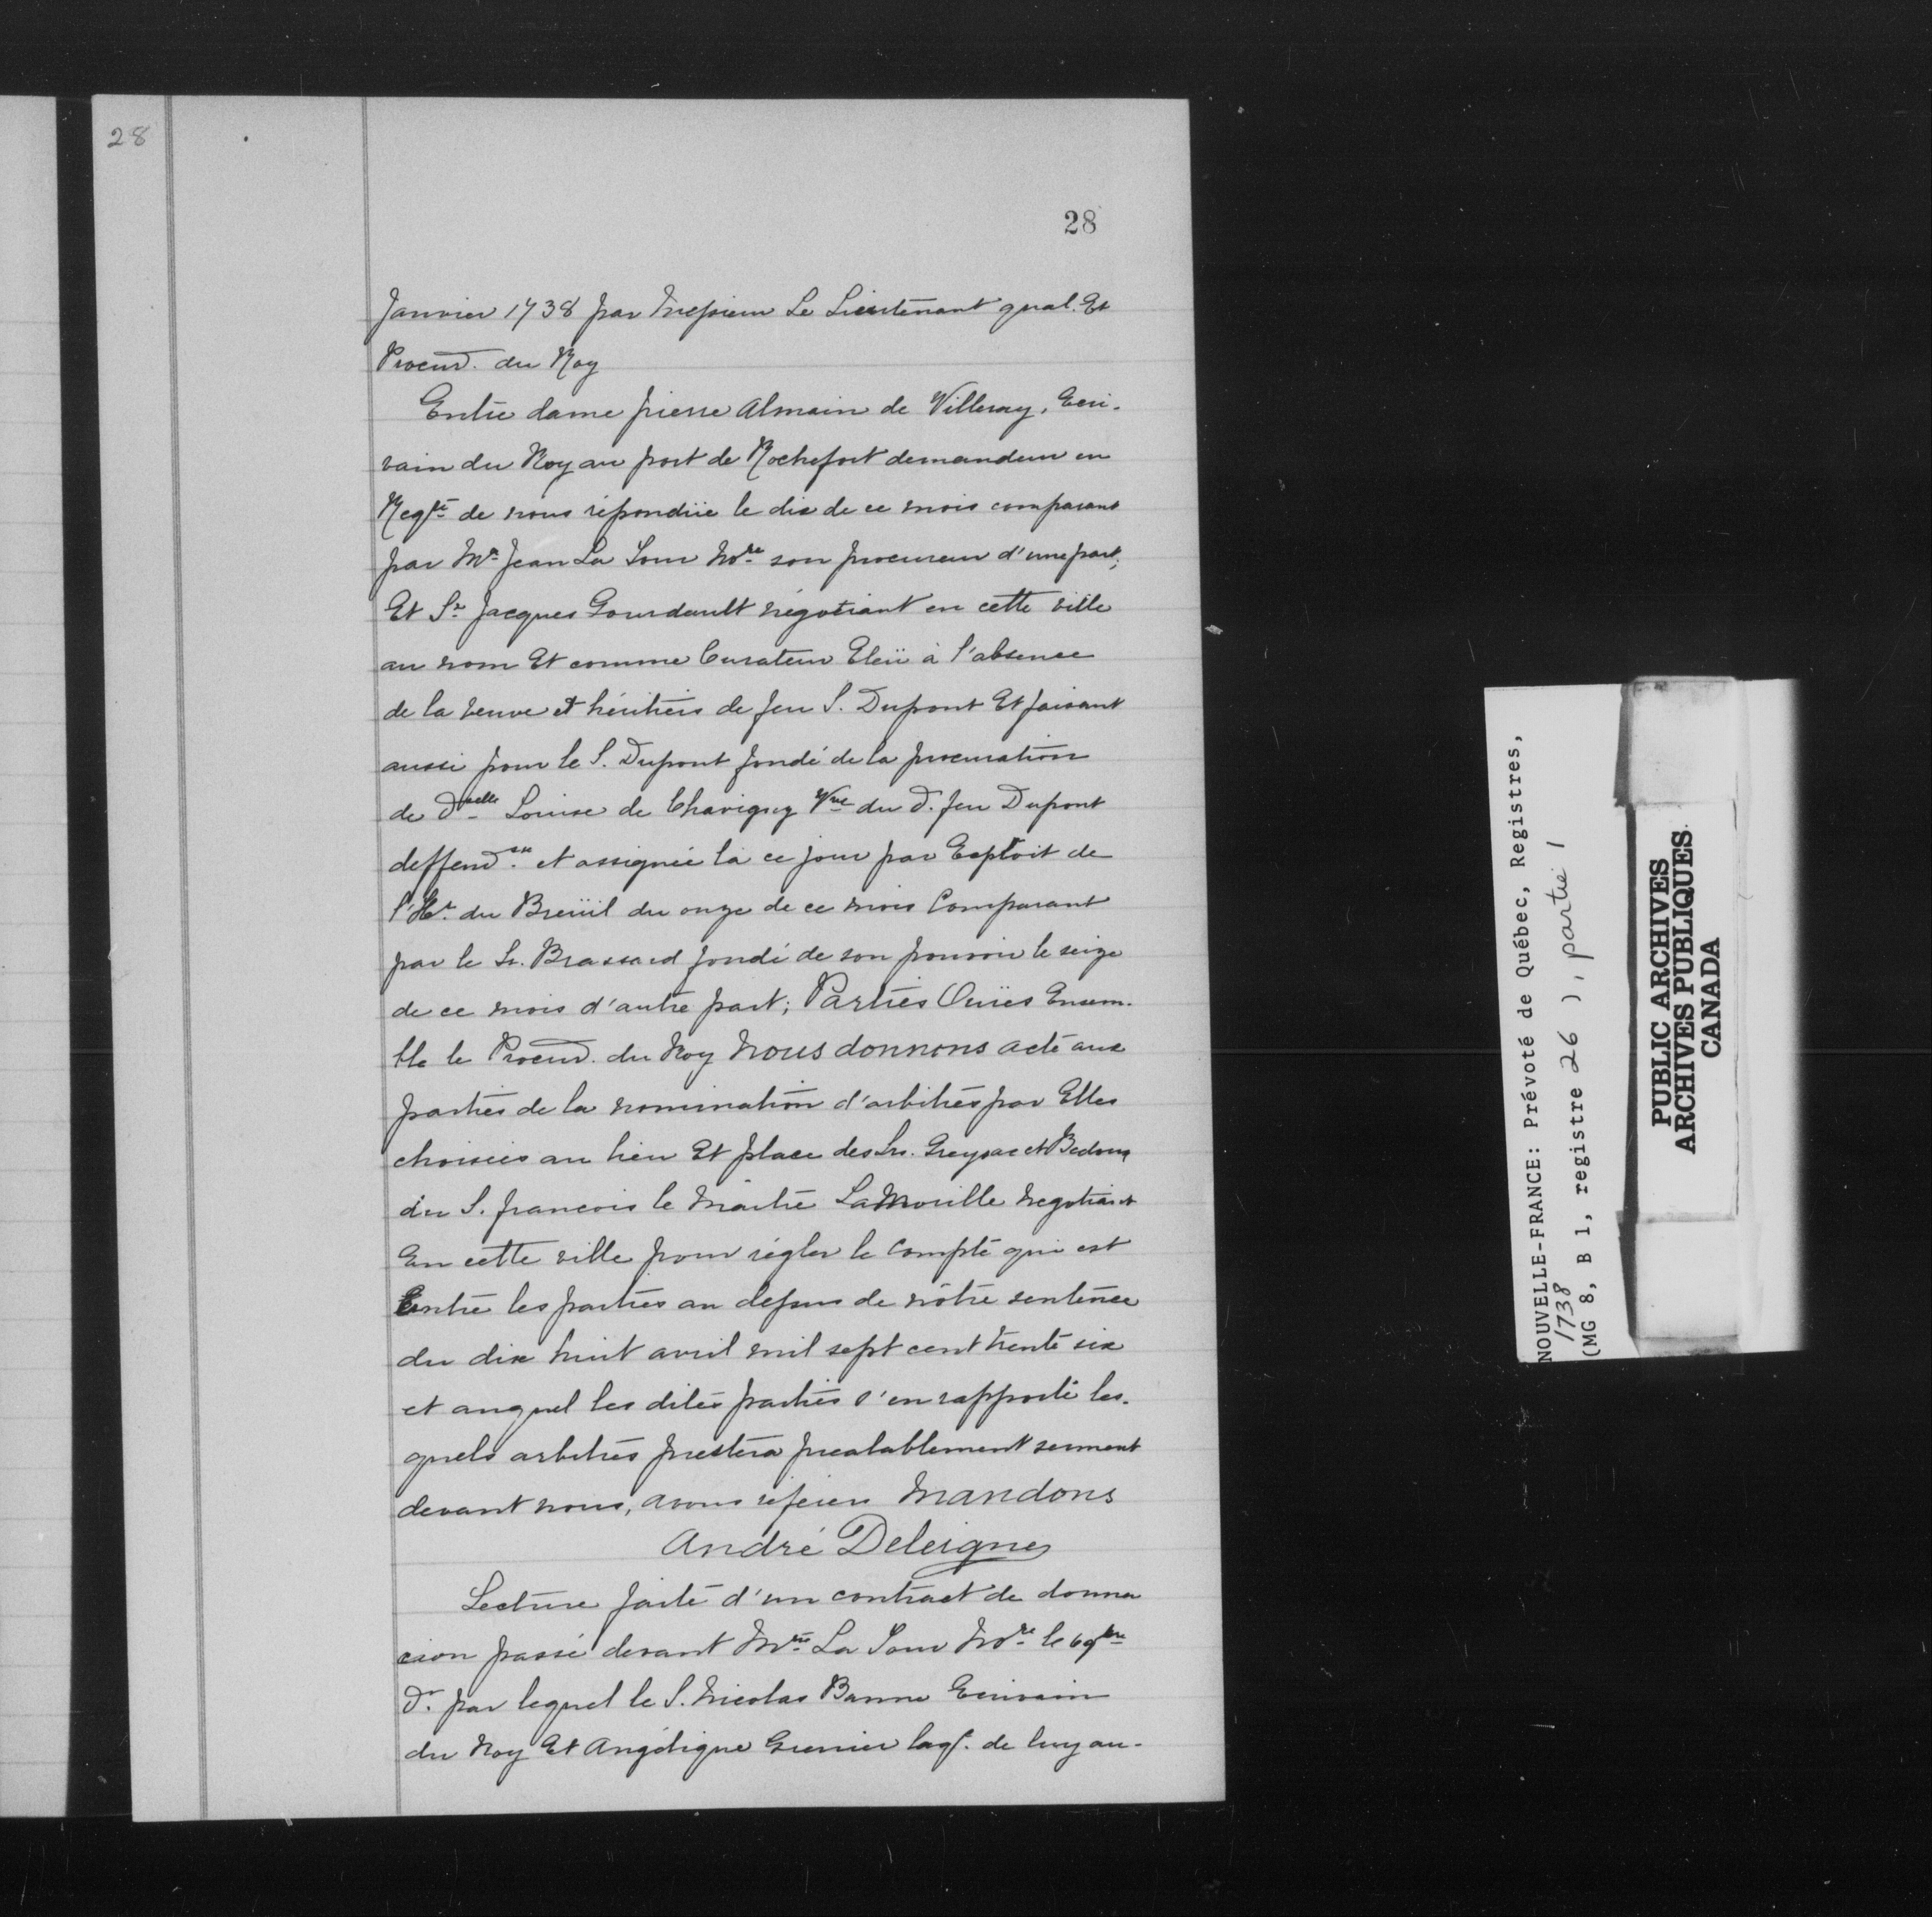 28
28
Janvier 1738 par Messieur Le Lieutenant gnal. Et
Procurd. du Roy
Entre dame pierre Almain de Villeray, Ecri-
vain du Roy au port de Rochefort demandeur en
Reqte de nous répondüe le dix de ce mois comparant
par Me Jean La Tour Nore son procureur d'une part;
Et Sr Jacques Gourdault négotiant en cette ville
au nom Et comme Curateur Eleü à l'absence
de la veuve et héritiers de feu S. Dupont Et faisant
aussi pour le S. Dupont fondé de la procuration
de Delle Louise de Chavigny Vve du d. feu Dupont
deffend. et assignée là ce jour par Exploit de
l'Hr. du Breüil du onze de ce mois Comparant
par le Sr. Brassard fondé de son pouvoir le seize
de ce mois d'autre part; Parties Ouïes Ensem-
ble le Procurd. du Roy Nous donnons acte aux
parties de la nomination d'arbitres par Elles
choisies au lieu Et place des Srs. Greysac et Bedout
du S. francois le Maitre LaMorille Negotiant
En cette ville pour régler le Compte qui est
Entre les parties au desirs de nôtre sentence
du dix huit avril mil sept cent trente six
et auquel les dites parties s'en rapporté les-
quels arbitres prestera prealablement serment
devant nous, avons Mandons
André Deleigne
Lecture faite d'un contract de donna
cion passé devant Me La Tour Nore le 6 9bre
dr. par lequel le S. Nicolas Banne Ecrivain
du Roy Et Angélique Grenier de luy au-
NOUVELLE-FRANCE: Prévoté de Québec, Registres,
1738
(MG 8, B 1, registre 26 ), partie 1
PUBLIC ARCHIVES
ARCHIVES PUBLIQUES
CANADA